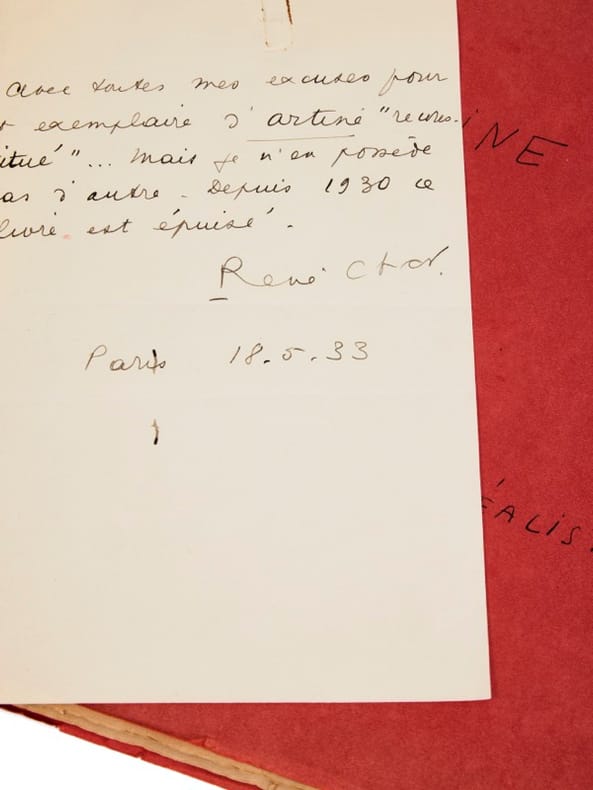 avec toutes mes excuses pour
exemplaire d'artine "recons-
titué"... Mais je n'en possède
pas d'autre. Depuis 1930 ce
livre est épuisé.
René Char.
Paris 18.5.33
INE
ÉALIS